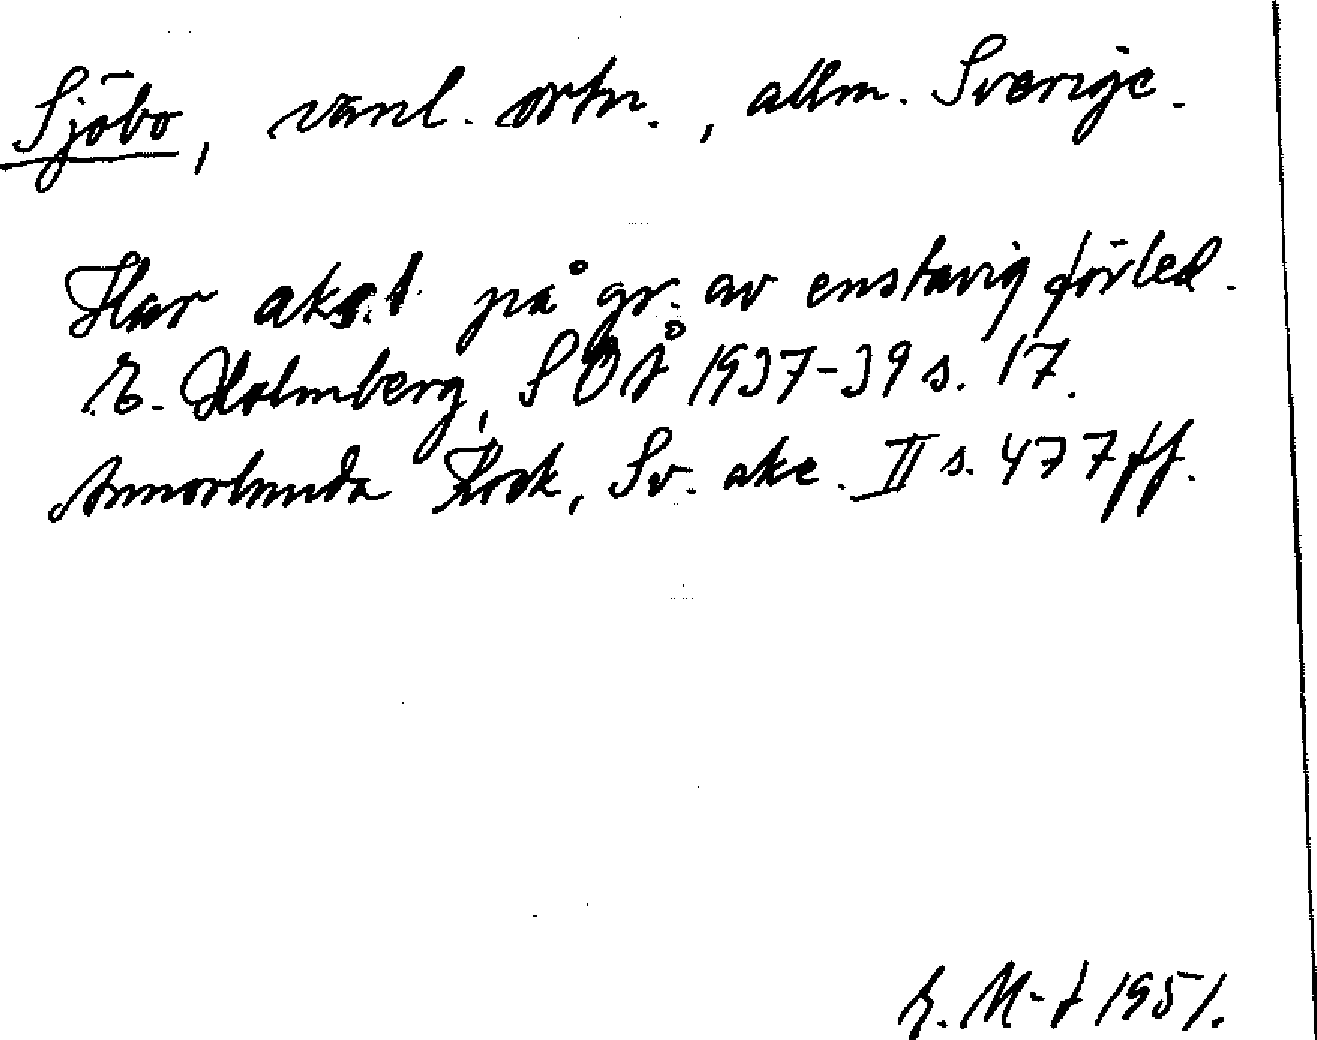 Sjöbo, vanl. ortn., allm. Sverige.
Har akc. 1 på gr. av enstavig förled.
E. Holmberg, SOÅ 1937-39 s. 17.
Annorlunda Kock, Sv. akc. II s. 477 ff.
M-t 1951.